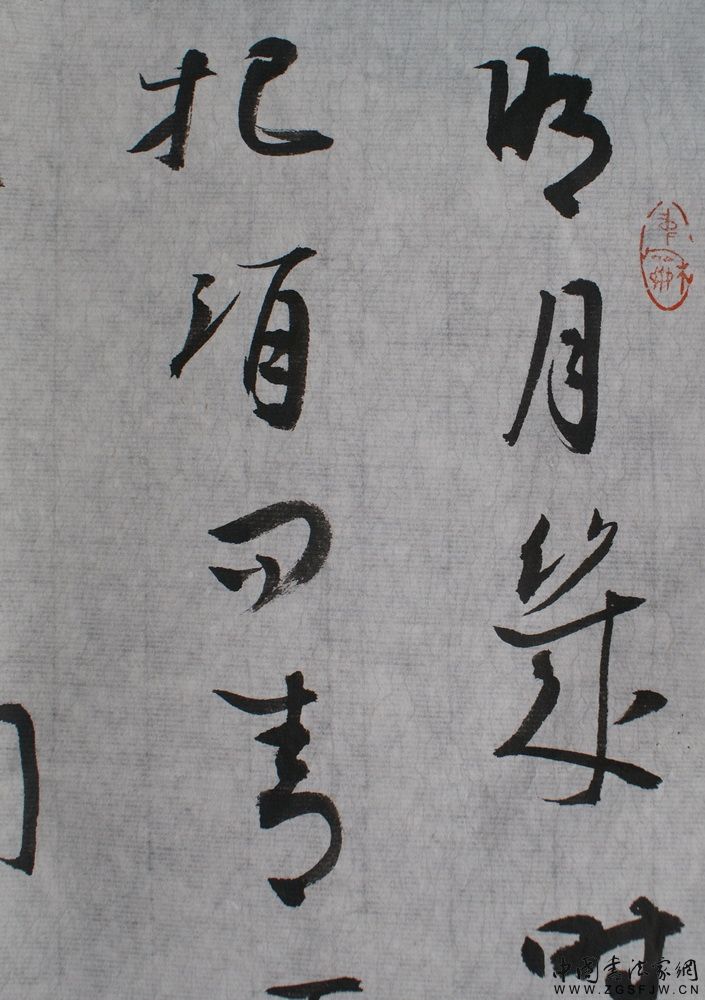 明月幾时
把酒问青
中国书法家網
WWW.ZGSFJW.CN